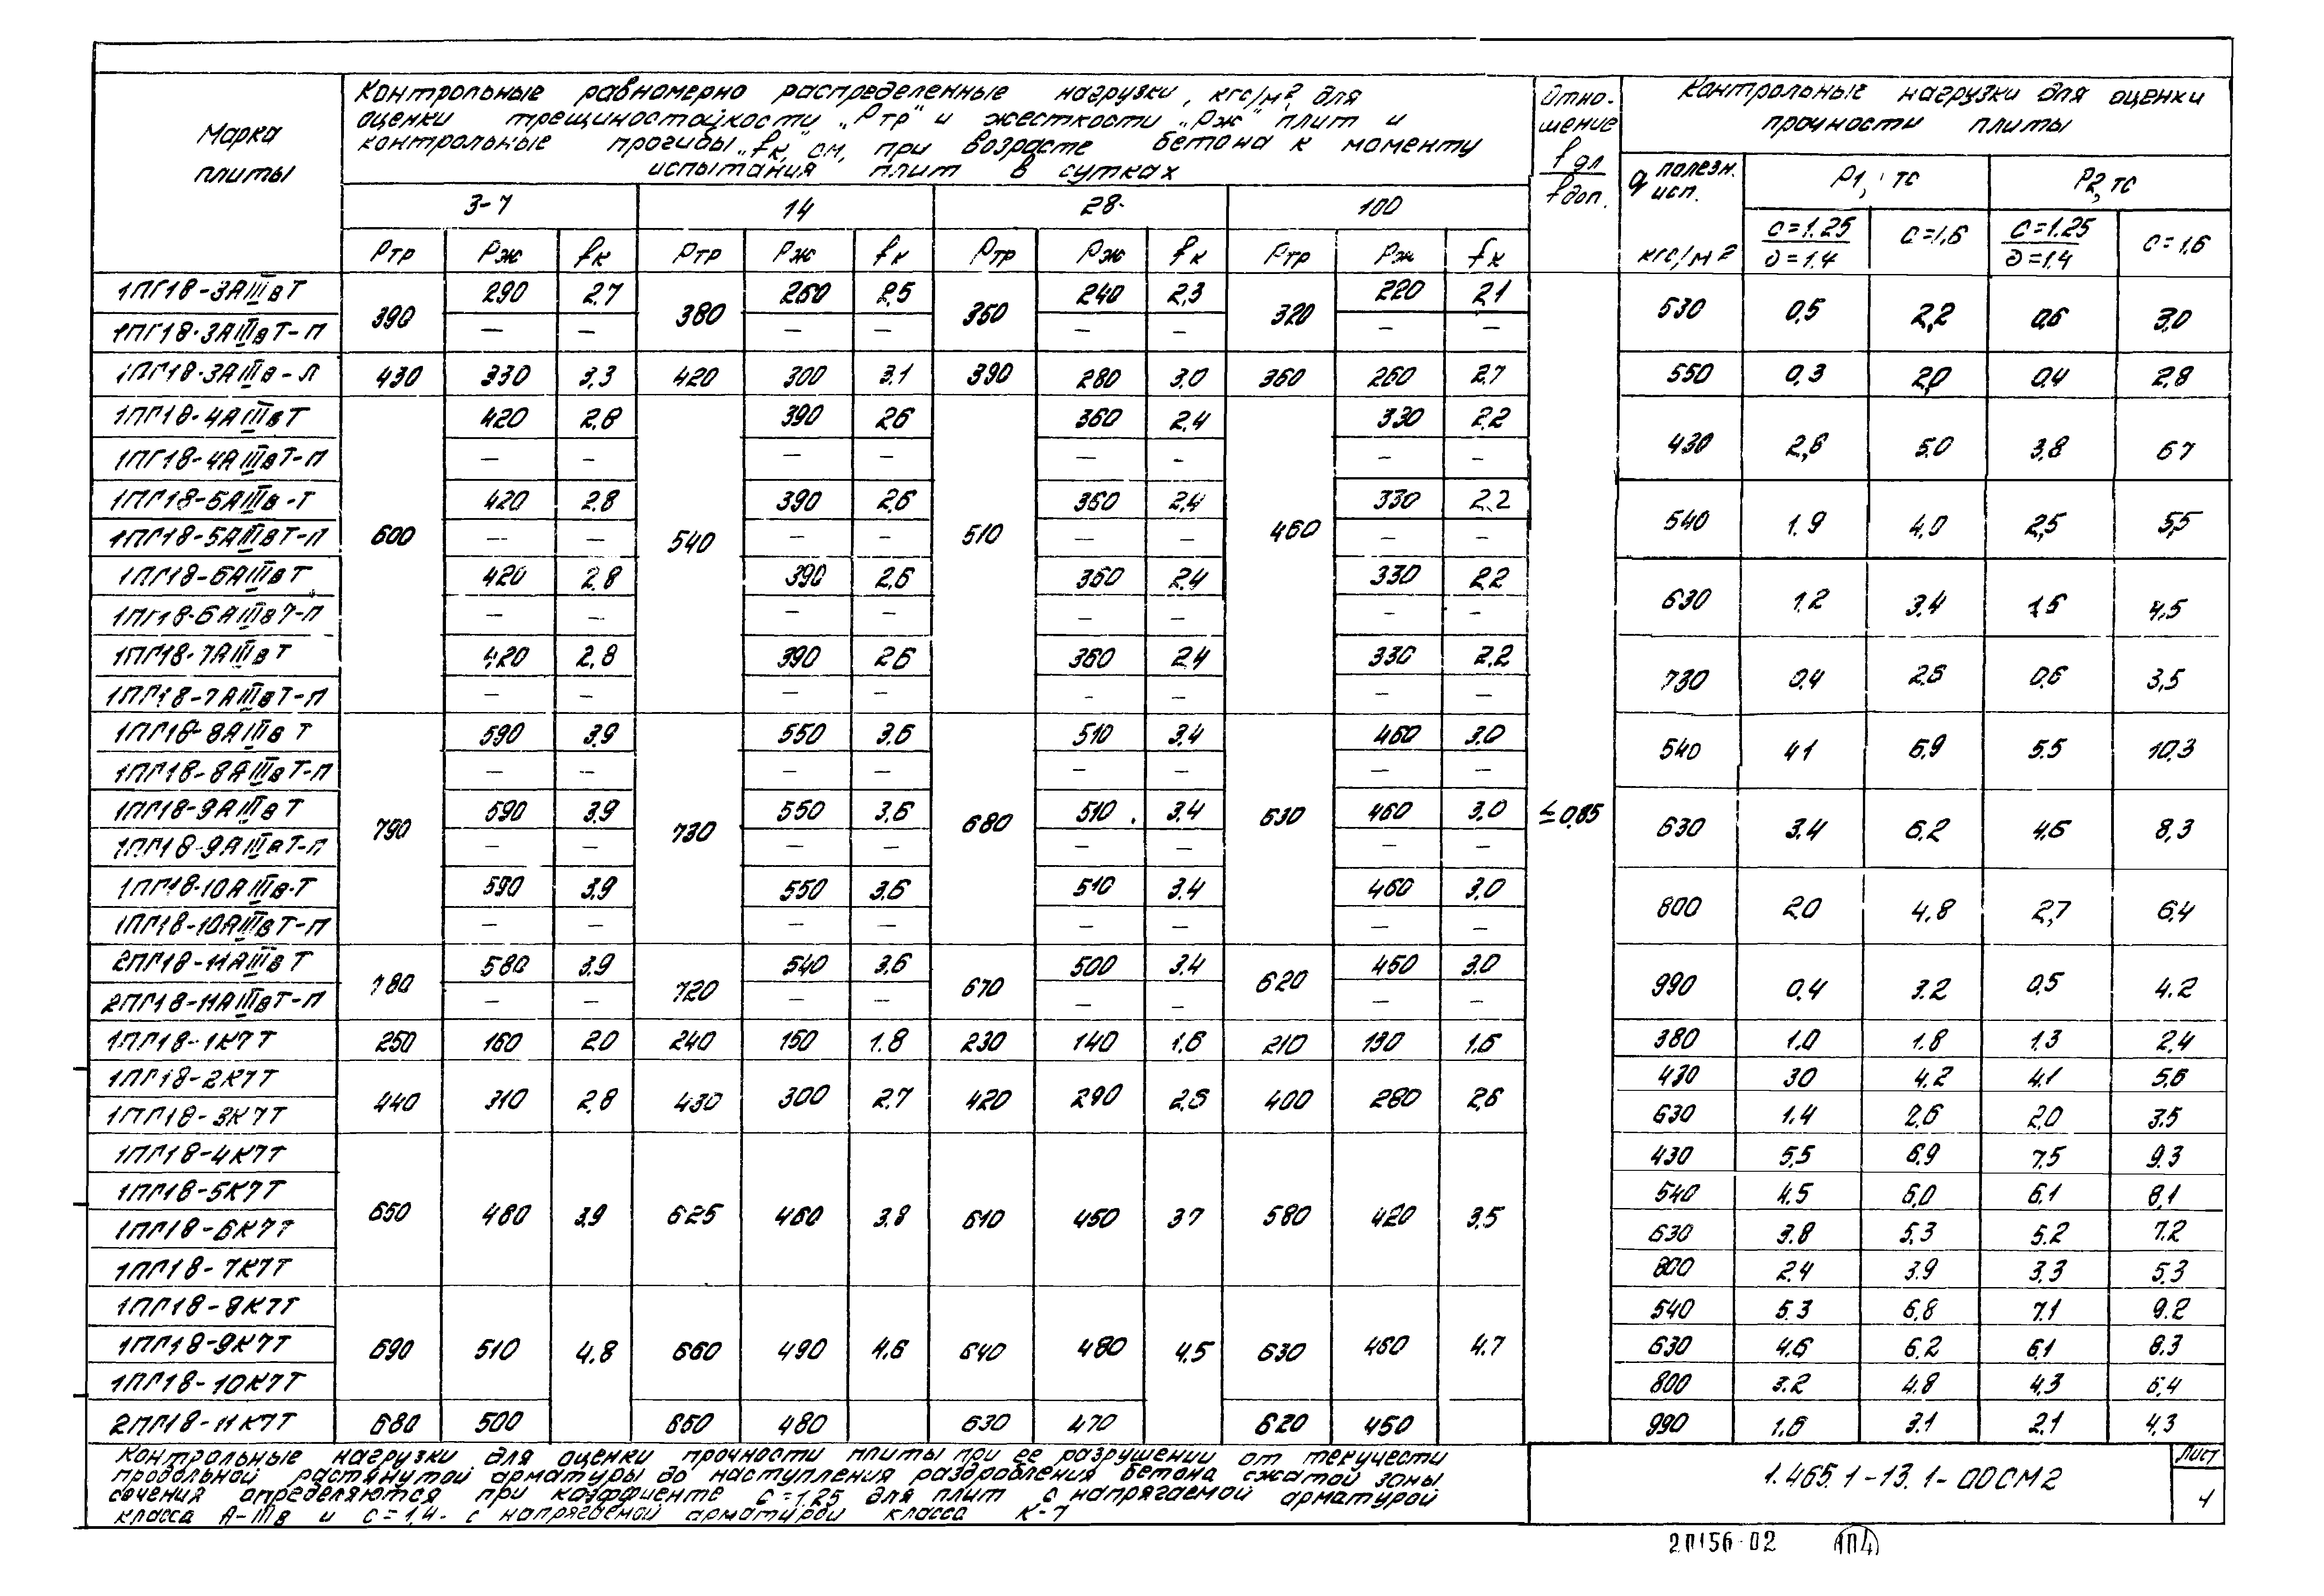 Марка плиты
Контрольные равномерно распределенные нагрузки, кгс/м², для
оценки трещиностойкости „Ртр" и жесткости „Рж" плит и
контрольные прогибы „fк" см, при возрасте бетона к моменту
испытания плит в сутках
Отно-
шение
fдл
fдоп.
Контрольные нагрузки для оценки
прочности плиты
3-7 14 28 100
q полезн. исп. кгс/м²
Р1, тс Р2, тс
Ртр Рж fк Ртр Рж fк Ртр Рж fк Ртр Рж fк
с=1.25 с=1,6 с=1.25 с=1,6
с=1.4 с=1.4
1ПГ18-3АIIIвТ 390 290 2.7 380 260 2,5 350 240 2,3 320 220 2,1 530 0,5 2,2 0,6 3,0
1ПГ18-3АIIIвТ-П — — — — — — — —
1ПГ18-3АIIIв-П 430 330 3,3 420 300 3.1 390 280 3,0 360 260 2.7 550 0,3 2,0 0,4 2,8
1ПГ18-4АIIIвТ 600 420 2.8 540 390 2.6 510 360 2.4 460 330 2.2 430 2,8 5.0 3,8 6.7
1ПГ18-4АIIIвТ-П — — — — — — — —
1ПГ18-5АIIIв-Т 420 2.8 390 2.6 360 2.4 330 2.2 540 1.9 4,0 2,5 5,5
1ПГ18-5АIIIвТ-П — — — — — — — —
1ПГ18-6АIIIвТ 420 2.8 390 2.6 360 2.4 330 2.2 630 1.2 3.4 1,5 4,5
1ПГ18-6АIIIвТ-П — — — — — — — —
1ПГ18-7АIIIвТ 420 2.8 390 2.6 360 2.4 330 2.2 730 0.4 2.6 0.6 3,5
1ПГ18-7АIIIвТ-П — — — — — — — —
1ПГ18-8АIIIвТ 790 590 3.9 730 550 3.6 680 510 3.4 630 460 3.0 ≤0,85 540 4.1 6,9 5.5 10,3
1ПГ18-8АIIIвТ-П — — — — — — — —
1ПГ18-9АIIIвТ 590 3.9 550 3.6 510 3.4 460 3.0 630 3.4 6,2 4.6 8,3
1ПГ18-9АIIIвТ-П — — — — — — — —
1ПГ18-10АIIIв-Т 590 3.9 550 3.6 510 3.4 460 3.0 800 2.0 4,8 2,7 6,4
1ПГ18-10АIIIвТ-П — — — — — — — —
2ПГ18-11АIIIвТ 780 580 3.9 720 540 3.6 670 500 3.4 620 450 3.0 990 0.4 3.2 0,5 4.2
2ПГ18-11АIIIвТ-П — — — — — — — —
1ПГ18-1К7Т 250 160 2.0 240 150 1.8 230 140 1,6 210 130 1,6 380 1.0 1.8 1.3 2.4
1ПГ18-2К7Т 440 310 2.8 430 300 2.7 420 290 2,6 400 280 2,6 430 3.0 4.2 4.1 5.6
1ПГ18-3К7Т 630 1.4 2,6 2,0 3.5
1ПГ18-4К7Т 650 480 3.9 625 460 3.8 610 450 3.7 580 420 3.5 430 5,5 6.9 7.5 9.3
1ПГ18-5К7Т 540 4.5 6,0 6,1 8,1
1ПГ18-6К7Т 630 3.8 5,3 5.2 7.2
1ПГ18-7К7Т 800 2.4 3.9 3,3 5,3
1ПГ18-8К7Т 690 510 4.8 660 490 4.6 640 480 4.5 630 460 4.7 540 5.3 6,8 7.1 9.2
1ПГ18-9К7Т 630 4.6 6,2 6,1 8.3
1ПГ18-10К7Т 800 3.2 4.8 4,3 6,4
2ПГ18-11К7Т 680 500 650 480 630 470 620 450 990 1.6 3.1 2.1 4,3
Контрольные нагрузки для оценки прочности плиты при ее разрушении от текучести
продольной растянутой арматуры до наступления раздробления бетона сжатой зоны
сечения определяются при коэффиенте с=1.25 для плит с напрягаемой арматурой
класса А-IIIв и с=1,4- с напрягаемой арматурой класса К-7
1.465.1-13.1-00СМ2
Лист
4
20156-02 104